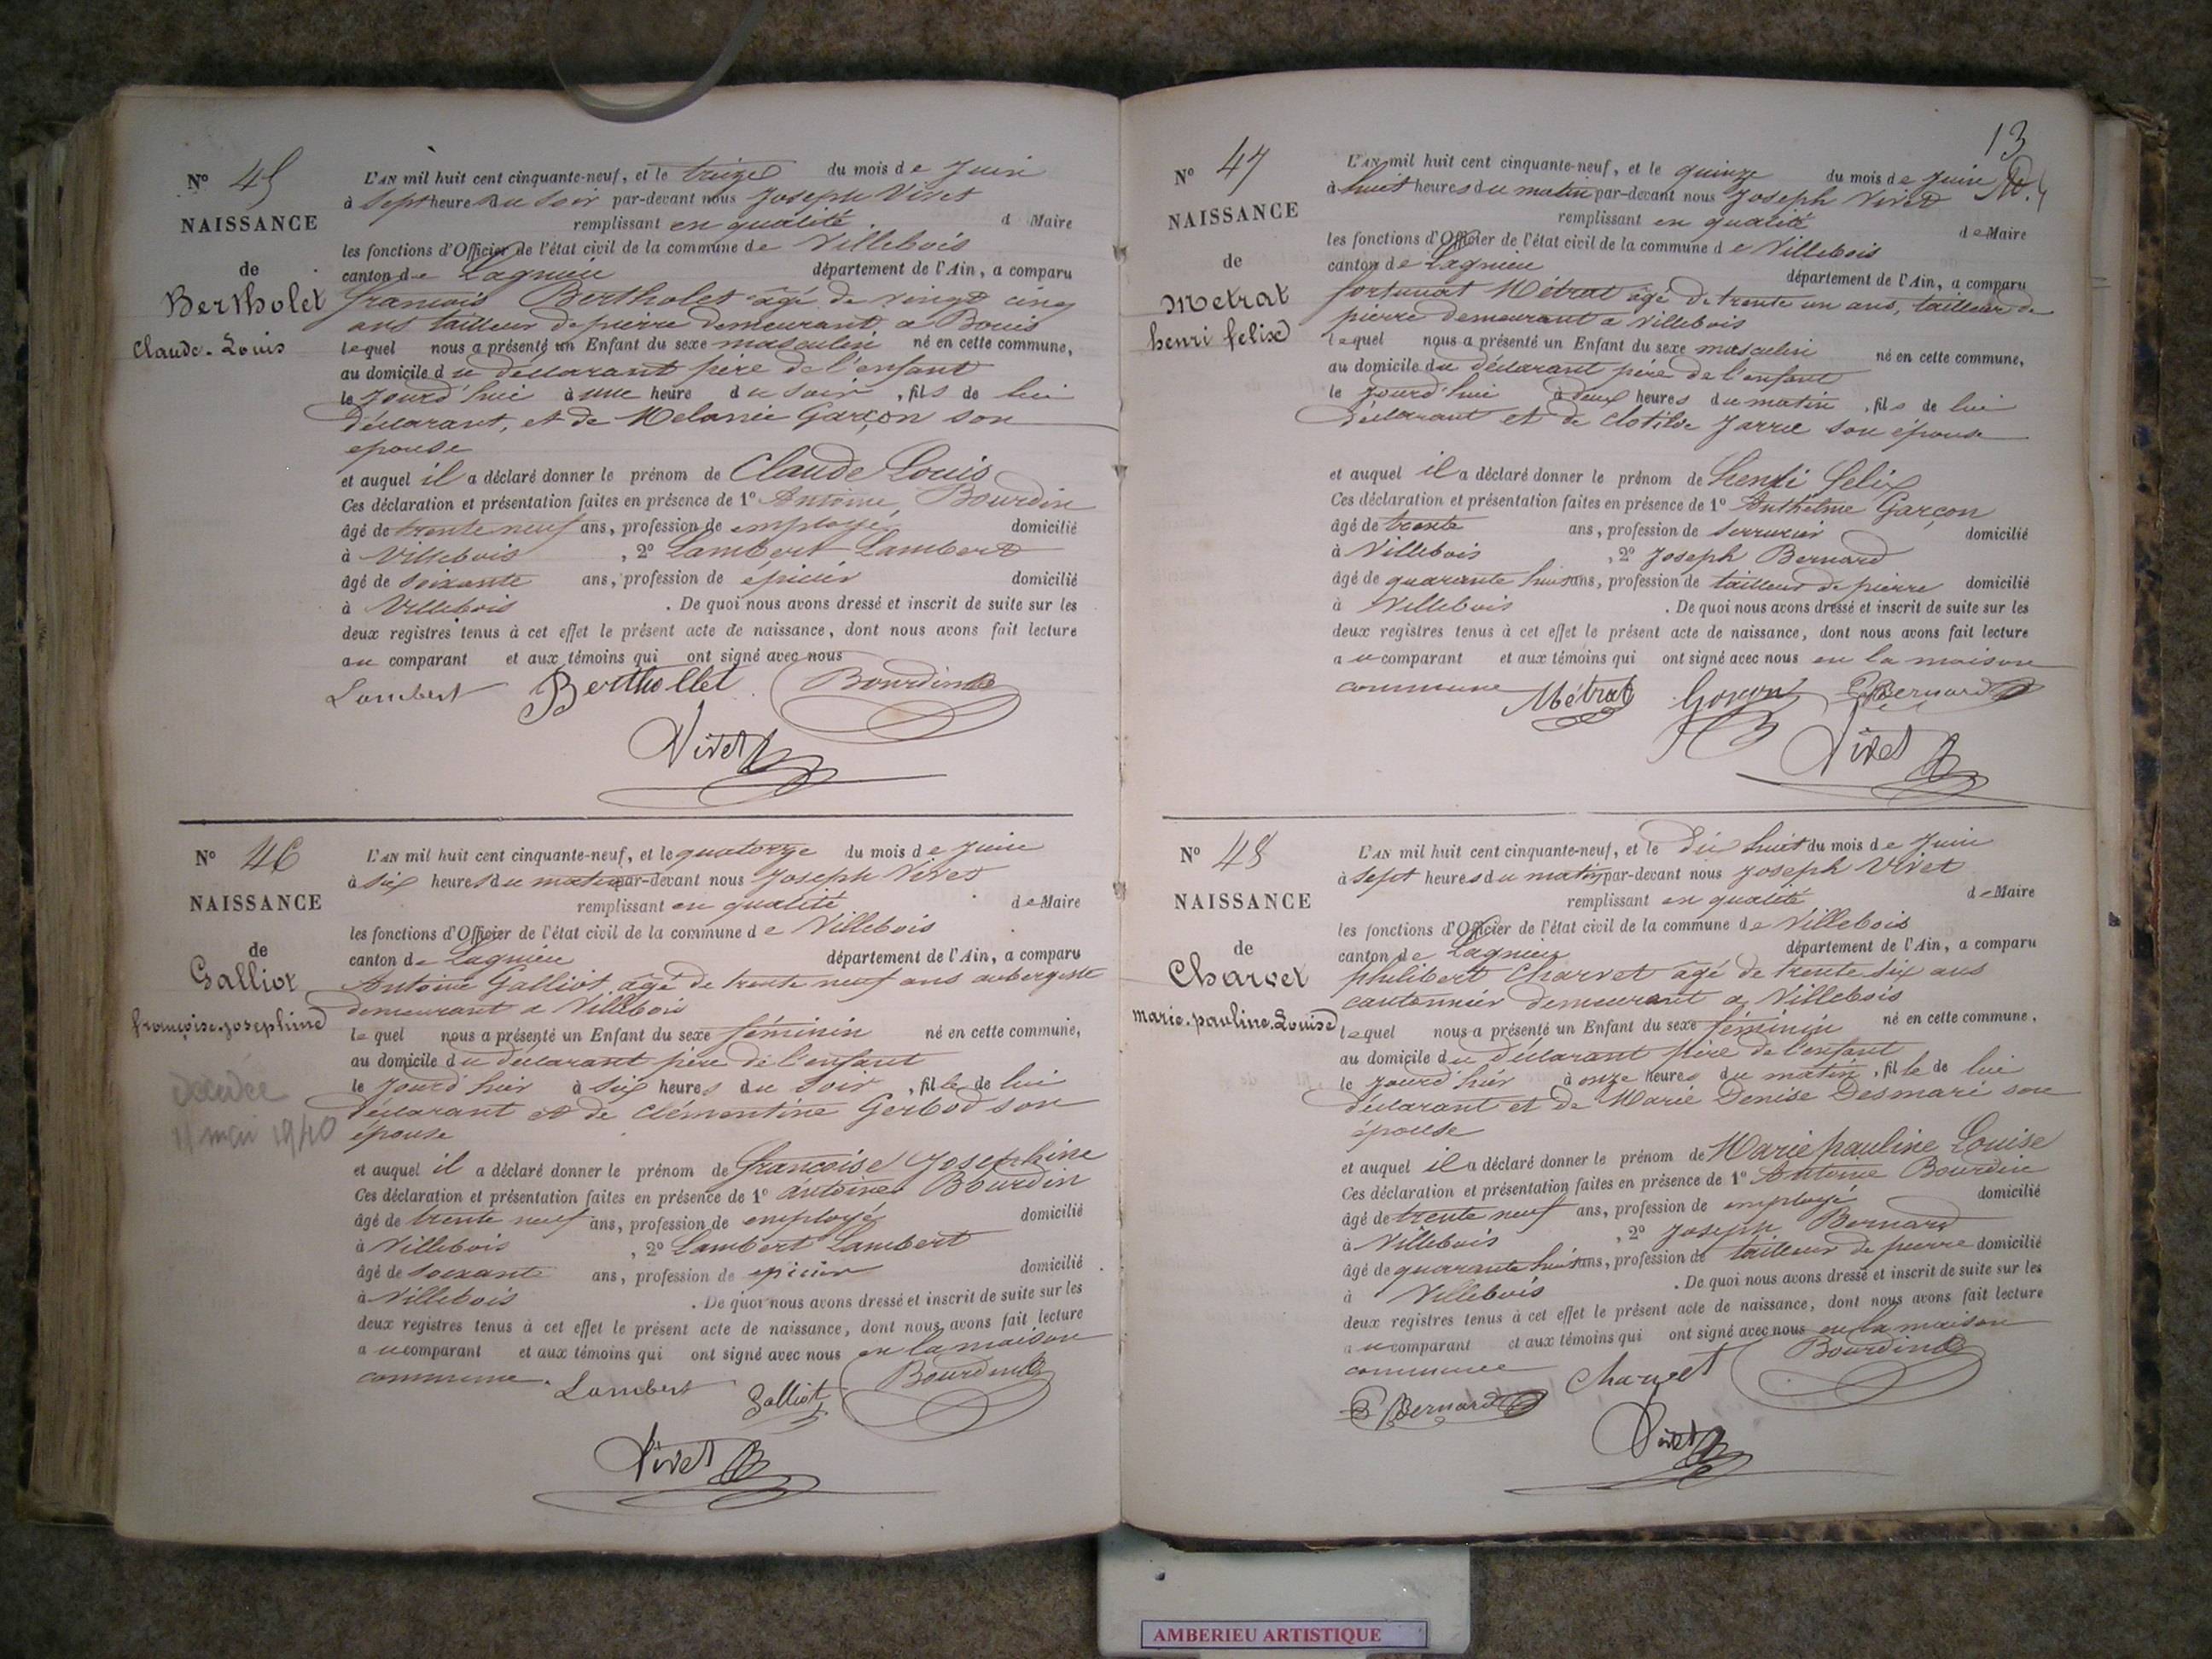 N° 45
NAISSANCE
de
Bertholet
Claude-Louis
L'AN mil huit cent cinquante-neuf, et le treize du mois de Juin
à Sept heures du Soir par-devant nous Joseph Vivet
remplissant en qualité d Maire
les fonctions d'Officier de l'état civil de la commune de Villebois
canton de Lagnieu département de l'Ain, a comparu
francois Bertholet âgé de vingt cinq
ans tailleur de pierre demeurant a Bouis
lequel nous a présenté un Enfant du sexe masculin né en cette commune,
au domicile du déclarant père de l'enfant
le jourd'hui à une heure du soir, fils de lui
déclarant, et de Melanie Garçon son
epouse
et auquel il a déclaré donner le prénom de Claude Louis
Ces déclaration et présentation faites en présence de 1° Antoine Bourdin
âgé de trente neuf ans, profession de employé domicilié
à Villebois, 2° Lambert Lambert
âgé de soixante ans, profession de épicier domicilié
à Villebois. De quoi nous avons dressé et inscrit de suite sur les
deux registres tenus à cet effet le présent acte de naissance, dont nous avons fait lecture
au comparant et aux témoins qui ont signé avec nous
Lambert Berthollet Bourdin
Vivet
N° 46
NAISSANCE
de
Galliot
françoise-josephine
décédée
11 mai 1940
L'AN mil huit cent cinquante-neuf, et le quatorze du mois de Juin
à six heures du matin par-devant nous Joseph Vivet
remplissant en qualité de Maire
les fonctions d'Officier de l'état civil de la commune de Villebois
canton de Lagnieu département de l'Ain, a comparu
Antoine Galliot âgé de trente neuf ans aubergiste
demeurant a Villebois
lequel nous a présenté un Enfant du sexe féminin né en cette commune,
au domicile du déclarant père de l'enfant
le jourd'hier à six heures du soir, fille de lui
déclarant et de clémentine Gerbod son
épouse
et auquel il a déclaré donner le prénom de françoise Josephine
Ces déclaration et présentation faites en présence de 1° antoine Bourdin
âgé de trente neuf ans, profession de employé domicilié
à Villebois, 2° Lambert Lambert
âgé de soixante ans, profession de epicier domicilié
à Villebois. De quoi nous avons dressé et inscrit de suite sur les
deux registres tenus à cet effet le présent acte de naissance, dont nous avons fait lecture
au comparant et aux témoins qui ont signé avec nous en la maison
commune. Lambert Galliot Bourdin
Vivet
13
N° 47
NAISSANCE
de
Metrat
henri felix
L'AN mil huit cent cinquante-neuf, et le quinze du mois de Juin
à huit heures du matin par-devant nous Joseph Vivet
remplissant en qualité de Maire
les fonctions d'Officier de l'état civil de la commune de Villebois
canton de Lagnieu département de l'Ain, a comparu
fortunat Métrat âgé de trente un ans, tailleur de
pierre demeurant a Villebois
lequel nous a présenté un Enfant du sexe masculin né en cette commune,
au domicile du déclarant père de l'enfant
le jourd'hui à deux heures du matin, fils de lui
déclarant et de clotilde Jarrie son épouse
et auquel il a déclaré donner le prénom de henri felix
Ces déclaration et présentation faites en présence de 1° Anthelme Garçon
âgé de trente ans, profession de serrurier domicilié
à Villebois, 2° Joseph Bernard
âgé de quarante huit ans, profession de tailleur de pierre domicilié
à Villebois. De quoi nous avons dressé et inscrit de suite sur les
deux registres tenus à cet effet le présent acte de naissance, dont nous avons fait lecture
au comparant et aux témoins qui ont signé avec nous en la maison
commune Métrat Garçon Bernard
Vivet
N° 48
NAISSANCE
de
Charvet
marie-pauline-Louise
L'AN mil huit cent cinquante-neuf, et le dix huit du mois de Juin
à sept heures du matin par-devant nous Joseph Vivet
remplissant en qualité de Maire
les fonctions d'Officier de l'état civil de la commune de Villebois
canton de Lagnieu département de l'Ain, a comparu
philibert Charvet âgé de trente six ans
cantonnier demeurant a Villebois
lequel nous a présenté un Enfant du sexe féminin né en cette commune,
au domicile du déclarant père de l'enfant
le jourd'hier à onze heures du matin, fille de lui
déclarant et de Marie Denise Desmari son
épouse
et auquel il a déclaré donner le prénom de Marie pauline Louise
Ces déclaration et présentation faites en présence de 1° Antoine Bourdin
âgé de trente neuf ans, profession de employé domicilié
à Villebois, 2° Joseph Bernard
âgé de quarante huit ans, profession de tailleur de pierre domicilié
à Villebois. De quoi nous avons dressé et inscrit de suite sur les
deux registres tenus à cet effet le présent acte de naissance, dont nous avons fait lecture
au comparant et aux témoins qui ont signé avec nous en la maison
commune Charvet Bourdin
Bernard
Vivet
AMBERIEU ARTISTIQUE